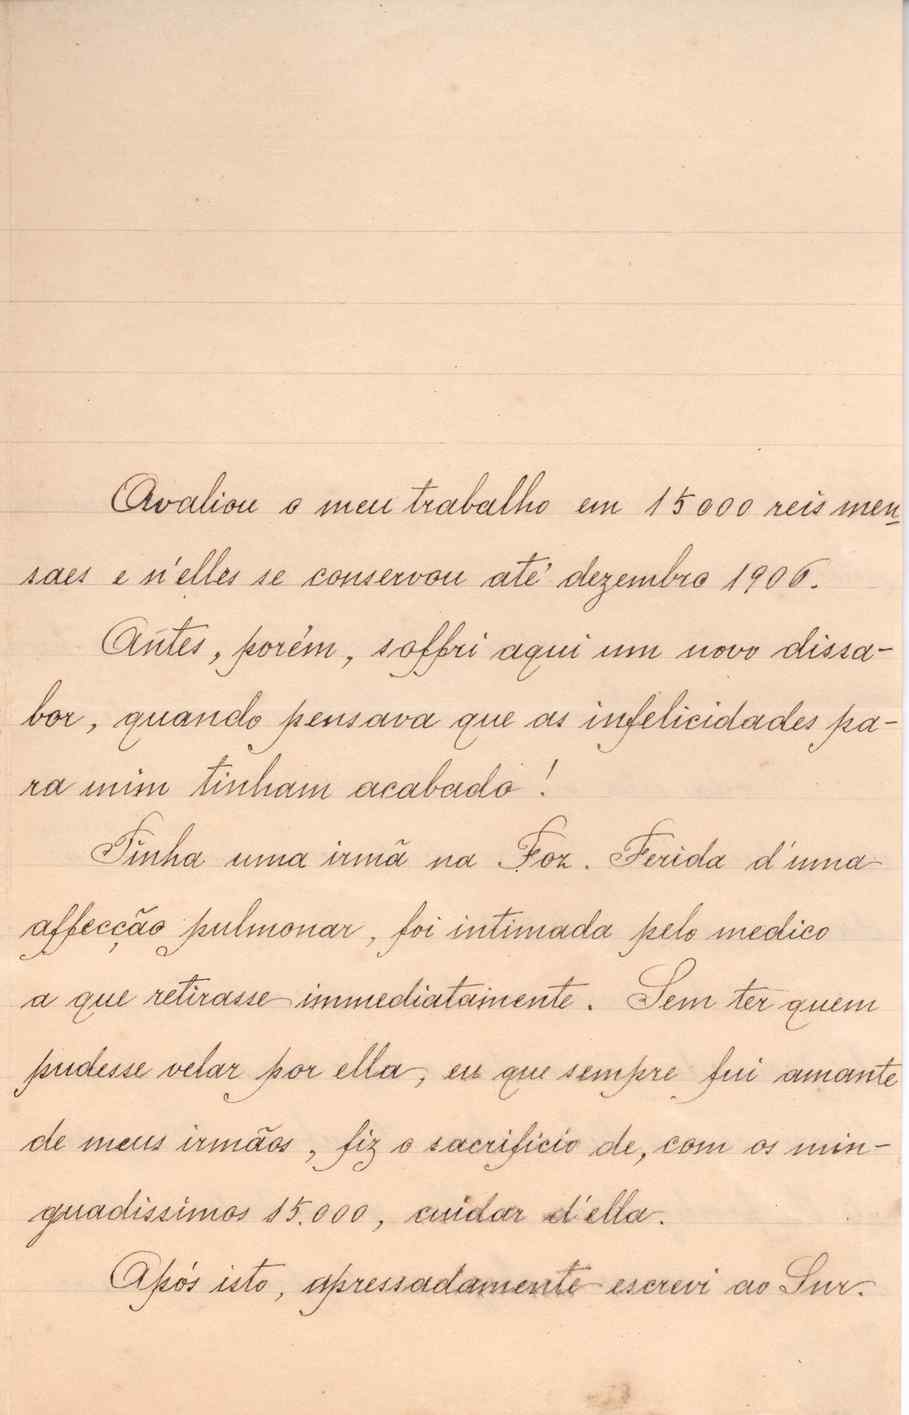 Avaliou o meu trabalho em 15000 reis men-
saes e n'elles se conservou até dezembro 1906.
Antes, porém, soffri aqui um novo dissa-
bor, quando pensava que as infelicidades pa-
ra mim tinham acabado!
Tinha uma irmã na Foz. Ferida d'uma
affecção pulmonar, foi intimada pelo medico
a que retirasse immediatamente. Sem ter quem
pudesse velar por ella, eu que sempre fui amante
de meus irmãos, fiz o sacrificio de, com os min-
guadissimos 15.000, cuidar d'ella.
Após isto, apressadamente escrevi ao Snr.